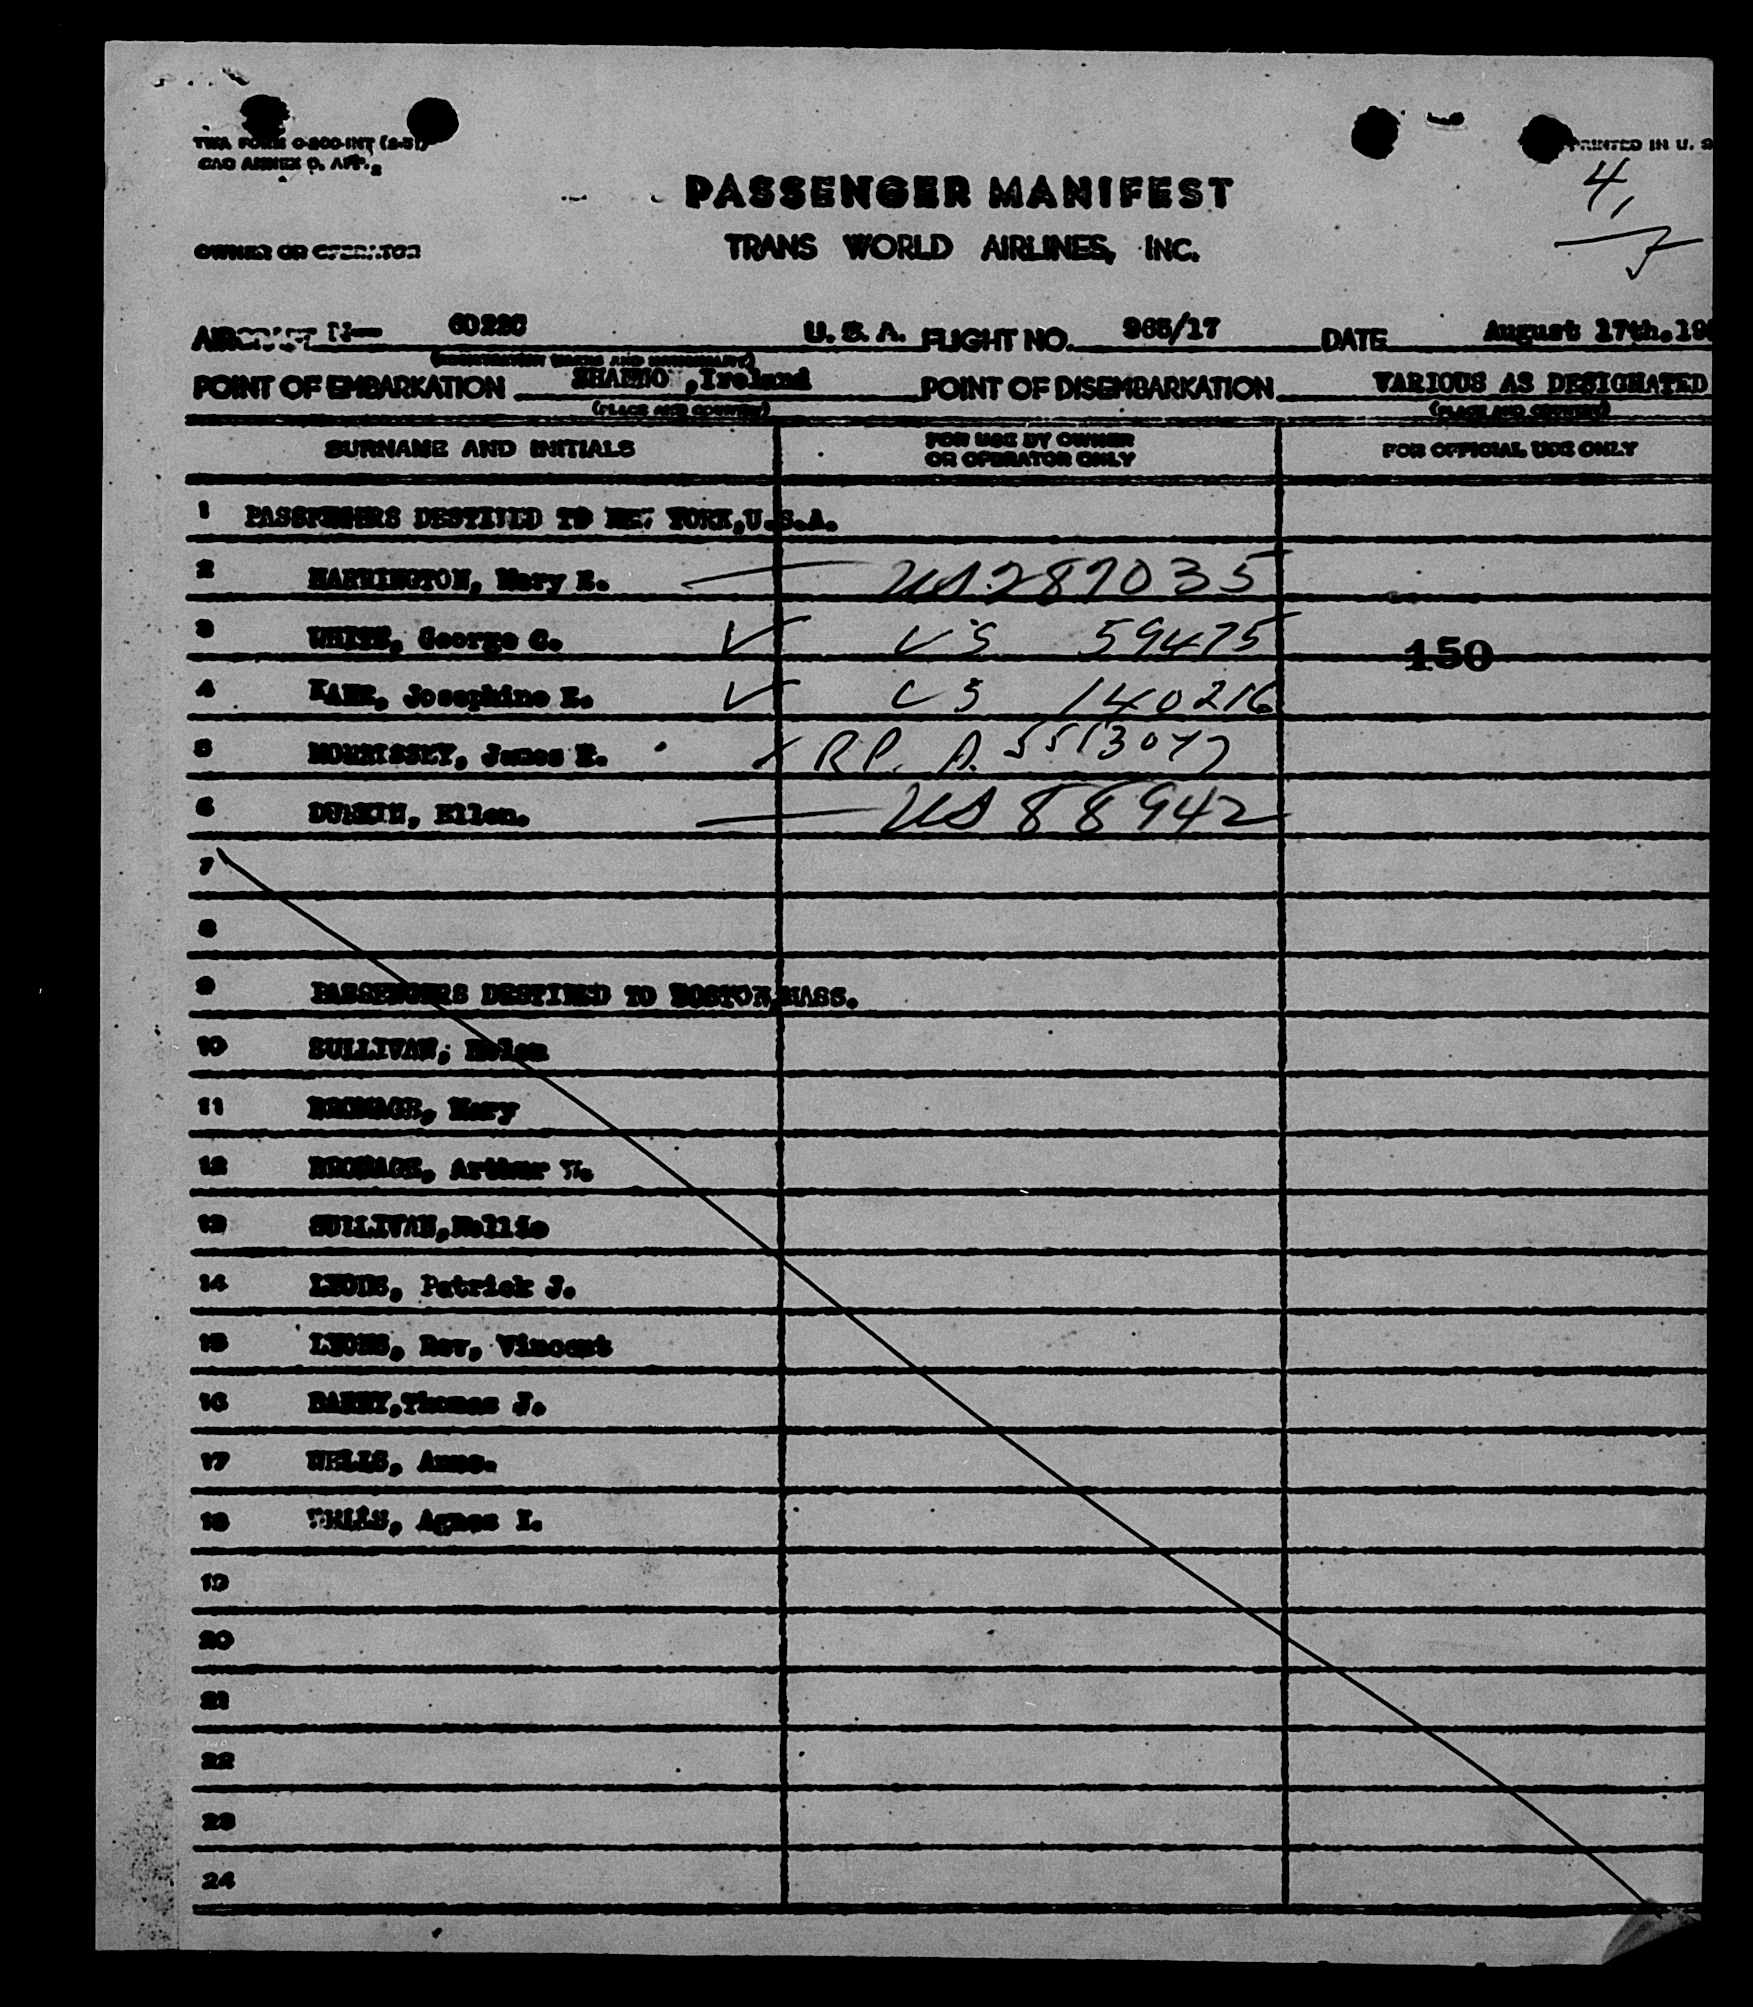 TWA FORM
PRINTED IN U. S
4,
PASSENGER MANIFEST
TRANS WORLD AIRLINES, INC.
OWNER OR OPERATOR
AIRCRAFT N— 6022C U. S. A. FLIGHT NO. 965/17 DATE August 17th,19
(REGISTRATION MARKS AND NATIONALITY)
POINT OF EMBARKATION SHANNON,Ireland POINT OF DISEMBARKATION VARIOUS AS DESIGNATED
(PLACE AND COUNTRY) (PLACE AND COUNTRY)
SURNAME AND INITIALS FOR USE BY OWNER OR OPERATOR ONLY FOR OFFICIAL USE ONLY
1 PASSENGERS DESTINED TO NEW YORK,U.S.A.
2 HARRINGTON, Mary E. US 287035
3 WHITE, George C. US 59475 150
4 Josephine E. US 140216
5 MORRISSEY, James E. RP. A. 5513077
6 DURKIN, Ellen. US 88942
7
8
9 PASSENGERS DESTINED TO BOSTON,MASS.
10 SULLIVAN, Helen
11 BROMAGE, Mary
12 BROMAGE, Arthur W.
13 SULLIVAN,Nellie
14 LYONS, Patrick J.
15 LYONS, Rev, Vincent
16 BARRY,Thomas J.
17 WELLS, Anne.
18 WELLS, Agnes I.
19
20
21
22
23
24